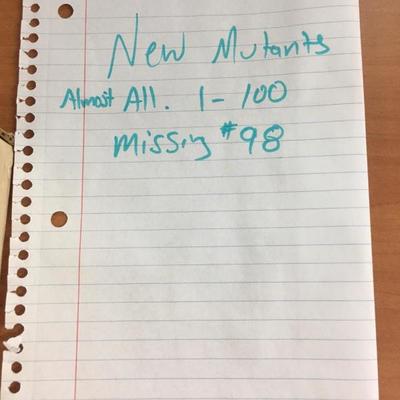 New Mutants
Almost All. 1-100
Missing #98